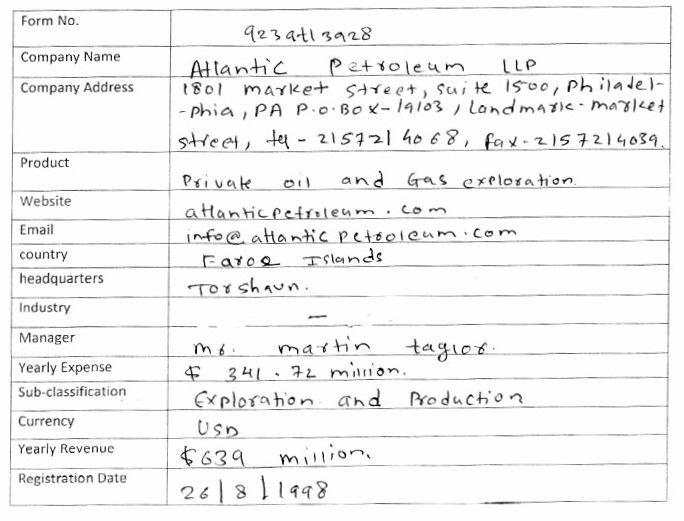 Form No. 923atl3928
Company Name Atlantic Petroleum LLP
Company Address 1801 market street, suite 1500, Philadel-
-phia, PA P.O.BOX-19103, Landmark-market
street, tel - 2157214068, fax-2157214039.
Product Private oil and Gas exploration.
Website atlanticpetroleum.com
Email info@atlanticpetroleum.com
country Faroe Islands
headquarters Torshavn.
Industry —
Manager mr. martin taylor.
Yearly Expense $ 341.72 million.
Sub-classification Exploration and Production
Currency USD
Yearly Revenue $639 million.
Registration Date 26/8/1998